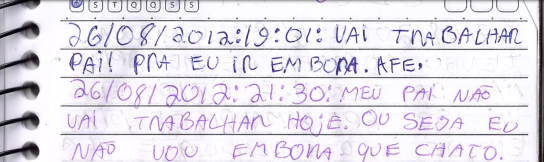 D S T Q Q S S
26/08/2012:19:01: VAI TRABALHAR
PAI! PRA EU IR EMBORA. AFE.
26/08/2012: 21:30: MEU PAI NÃO
VAI TRABALHAR HOJE. OU SEJA EU
NÃO VOU EMBORA. QUE CHATO.